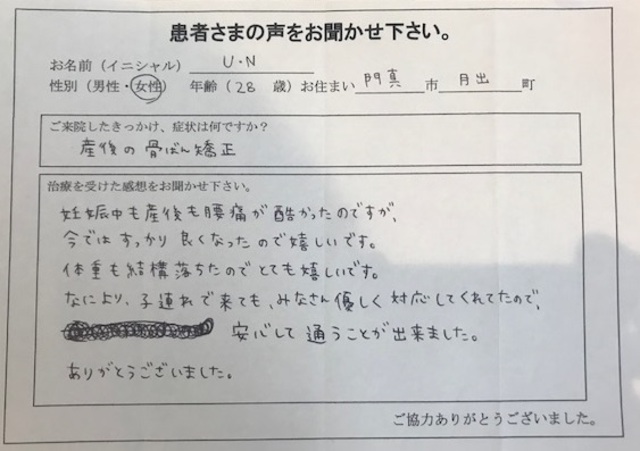 患者さまの声をお聞かせ下さい。
お名前（イニシャル） U・N
性別（男性・女性） 年齢（28 歳）お住まい 門真 市 月出 町
ご来院したきっかけ、症状は何ですか？
産後の骨ばん矯正
治療を受けた感想をお聞かせ下さい。
妊娠中も産後も腰痛が酷かったのですが、
今ではすっかり良くなったので嬉しいです。
体重も結構落ちたのでとても嬉しいです。
なにより、子連れで来ても、みなさん優しく対応してくれてたので、
安心して通うことが出来ました。
ありがとうございました。
ご協力ありがとうございました。